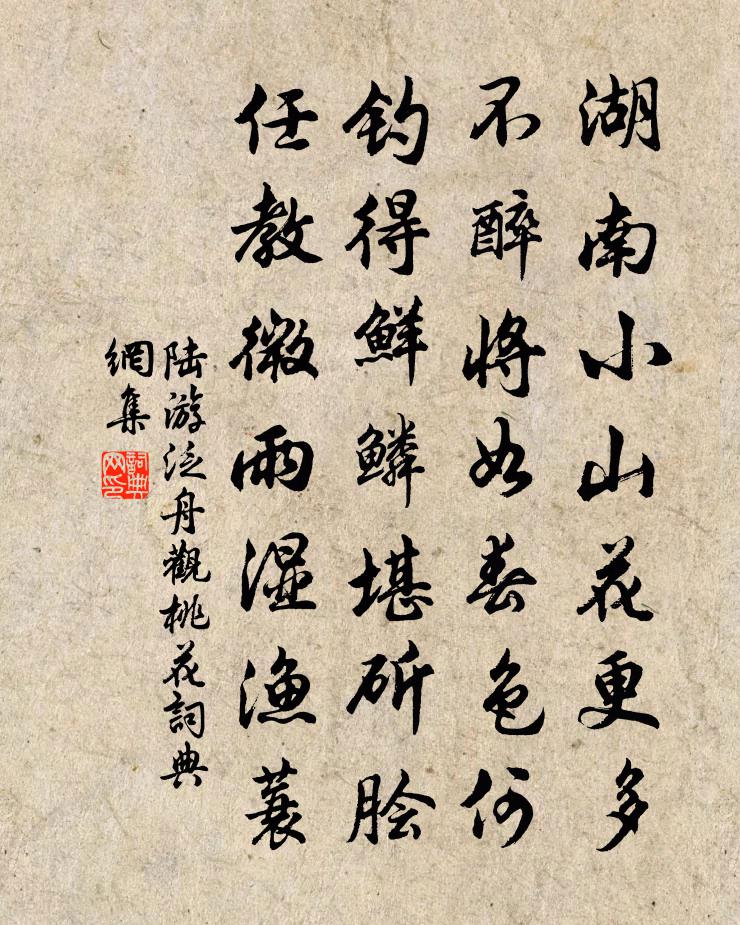 湖南小山花更多
不醉将如春色何
钓得鲜鳞堪斫脍
任教微雨湿渔蓑
陆游泛舟觀桃花詞典
網集
詞典
网印